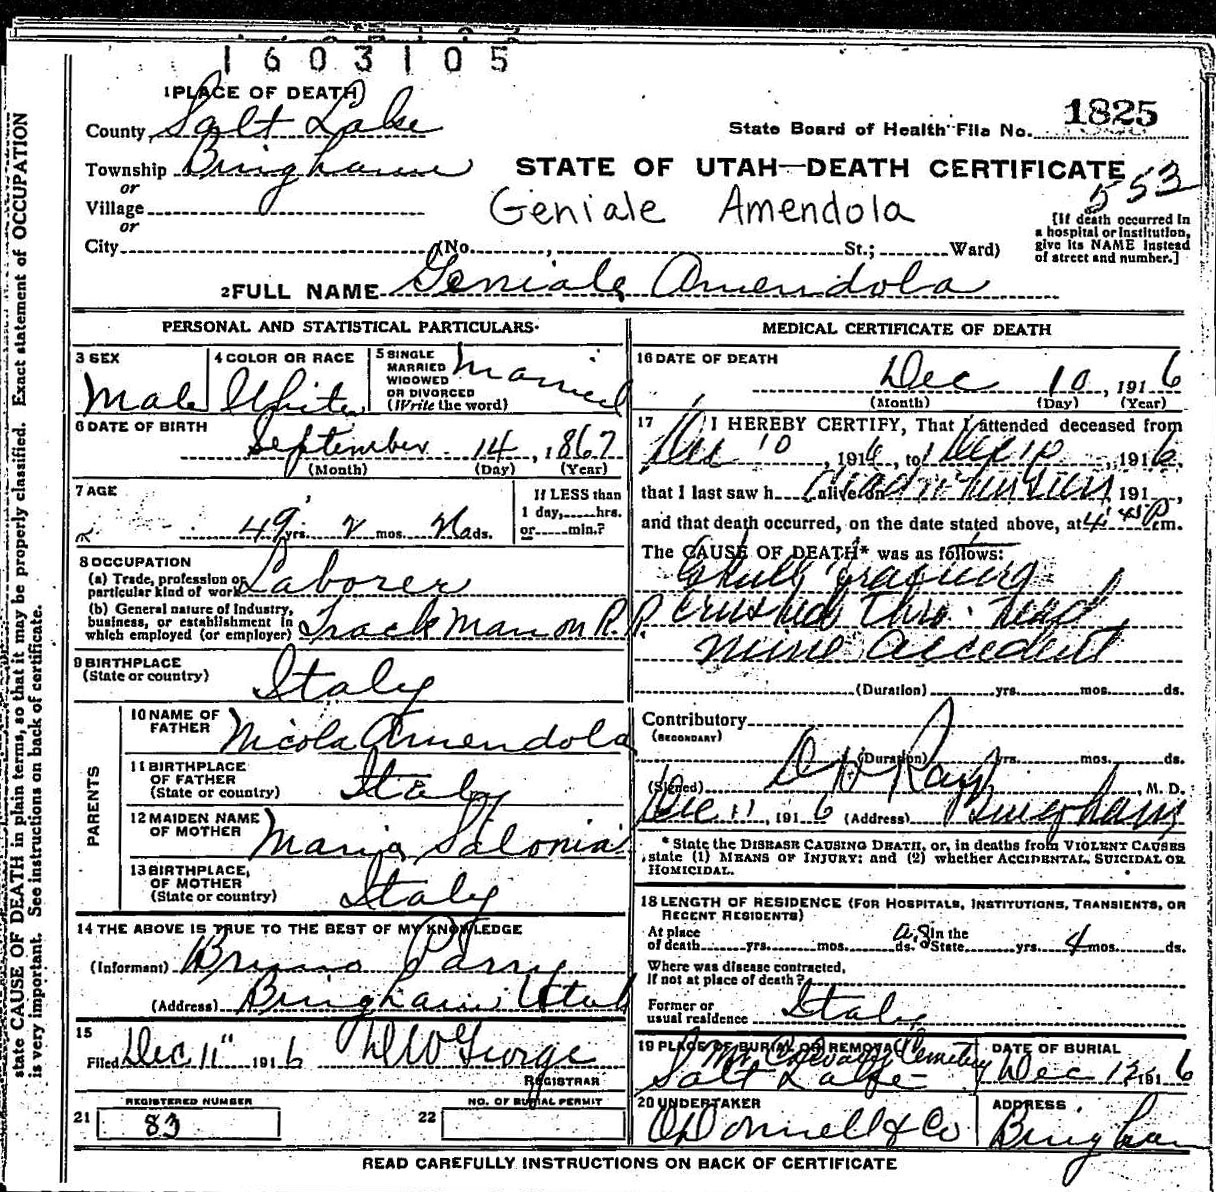 1603105
1 PLACE OF DEATH
County Salt Lake
State Board of Health File No. 1825
Township Bingham
STATE OF UTAH—DEATH CERTIFICATE
553
or
Village
Geniale Amendola
or
City (No. , St.; Ward)
[If death occurred in
a hospital or institution,
give its NAME instead
of street and number.]
2 FULL NAME Geniale Amendola
PERSONAL AND STATISTICAL PARTICULARS
3 SEX
Male
4 COLOR OR RACE
White
5 SINGLE
MARRIED
WIDOWED
OR DIVORCED
(Write the word)
Married
6 DATE OF BIRTH
September 14, 1867
(Month) (Day) (Year)
7 AGE
49 yrs. 2 mos. ds.
If LESS than
1 day, hrs.
or min.?
8 OCCUPATION
(a) Trade, profession or
particular kind of work Laborer
(b) General nature of industry,
business, or establishment in
which employed (or employer) Track Man on R.R.
9 BIRTHPLACE
(State or country) Italy
PARENTS
10 NAME OF
FATHER Nicola Amendola
11 BIRTHPLACE
OF FATHER
(State or country) Italy
12 MAIDEN NAME
OF MOTHER Maria Silonia
13 BIRTHPLACE,
OF MOTHER
(State or country) Italy
14 THE ABOVE IS TRUE TO THE BEST OF MY KNOWLEDGE
(Informant) Bruno Parry
(Address) Bingham Utah
15
Filed Dec 11" 1916 DW George
REGISTRAR
REGISTERED NUMBER
21 83
NO. OF BURIAL PERMIT
22
MEDICAL CERTIFICATE OF DEATH
16 DATE OF DEATH
Dec 10, 1916
(Month) (Day) (Year)
17 I HEREBY CERTIFY, That I attended deceased from
Dec 10, 1916, to Dec 10, 1916,
that I last saw h alive on 191 ,
and that death occurred, on the date stated above, at 4:45 P m.
The CAUSE OF DEATH* was as follows:
Skull
crushed thro. head
mine accident
(Duration) yrs. mos. ds.
Contributory
(SECONDARY)
(Duration) yrs. mos. ds.
(Signed) D H Ray, M. D.
Dec 11, 1916 (Address) Bingham
* State the DISEASE CAUSING DEATH, or, in deaths from VIOLENT CAUSES
state (1) MEANS OF INJURY; and (2) whether ACCIDENTAL, SUICIDAL OR
HOMICIDAL.
18 LENGTH OF RESIDENCE (FOR HOSPITALS, INSTITUTIONS, TRANSIENTS, OR
RECENT RESIDENTS)
At place In the
of death yrs. mos. ds. State yrs. 4 mos. ds.
Where was disease contracted,
if not at place of death?
Former or
usual residence Italy
19 PLACE OF BURIAL OR REMOVAL
Mt. Calvary Cemetery
Salt Lake
DATE OF BURIAL
Dec 12 1916
20 UNDERTAKER
O'Donnell & Co
ADDRESS
Bingham
READ CAREFULLY INSTRUCTIONS ON BACK OF CERTIFICATE
state CAUSE OF DEATH in plain terms, so that it may be properly classified. Exact statement of OCCUPATION
is very important. See instructions on back of certificate.